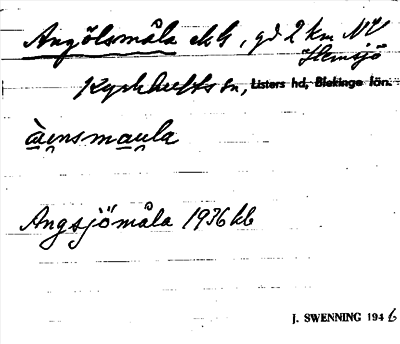 Angölsmåla ekG, gd 2 km NV
Hemsjö
Kyrkhults sn, Listers hd, Blekinge län.
àensmaula
Angsjömåla 1936 kb
J. SWENNING 1946